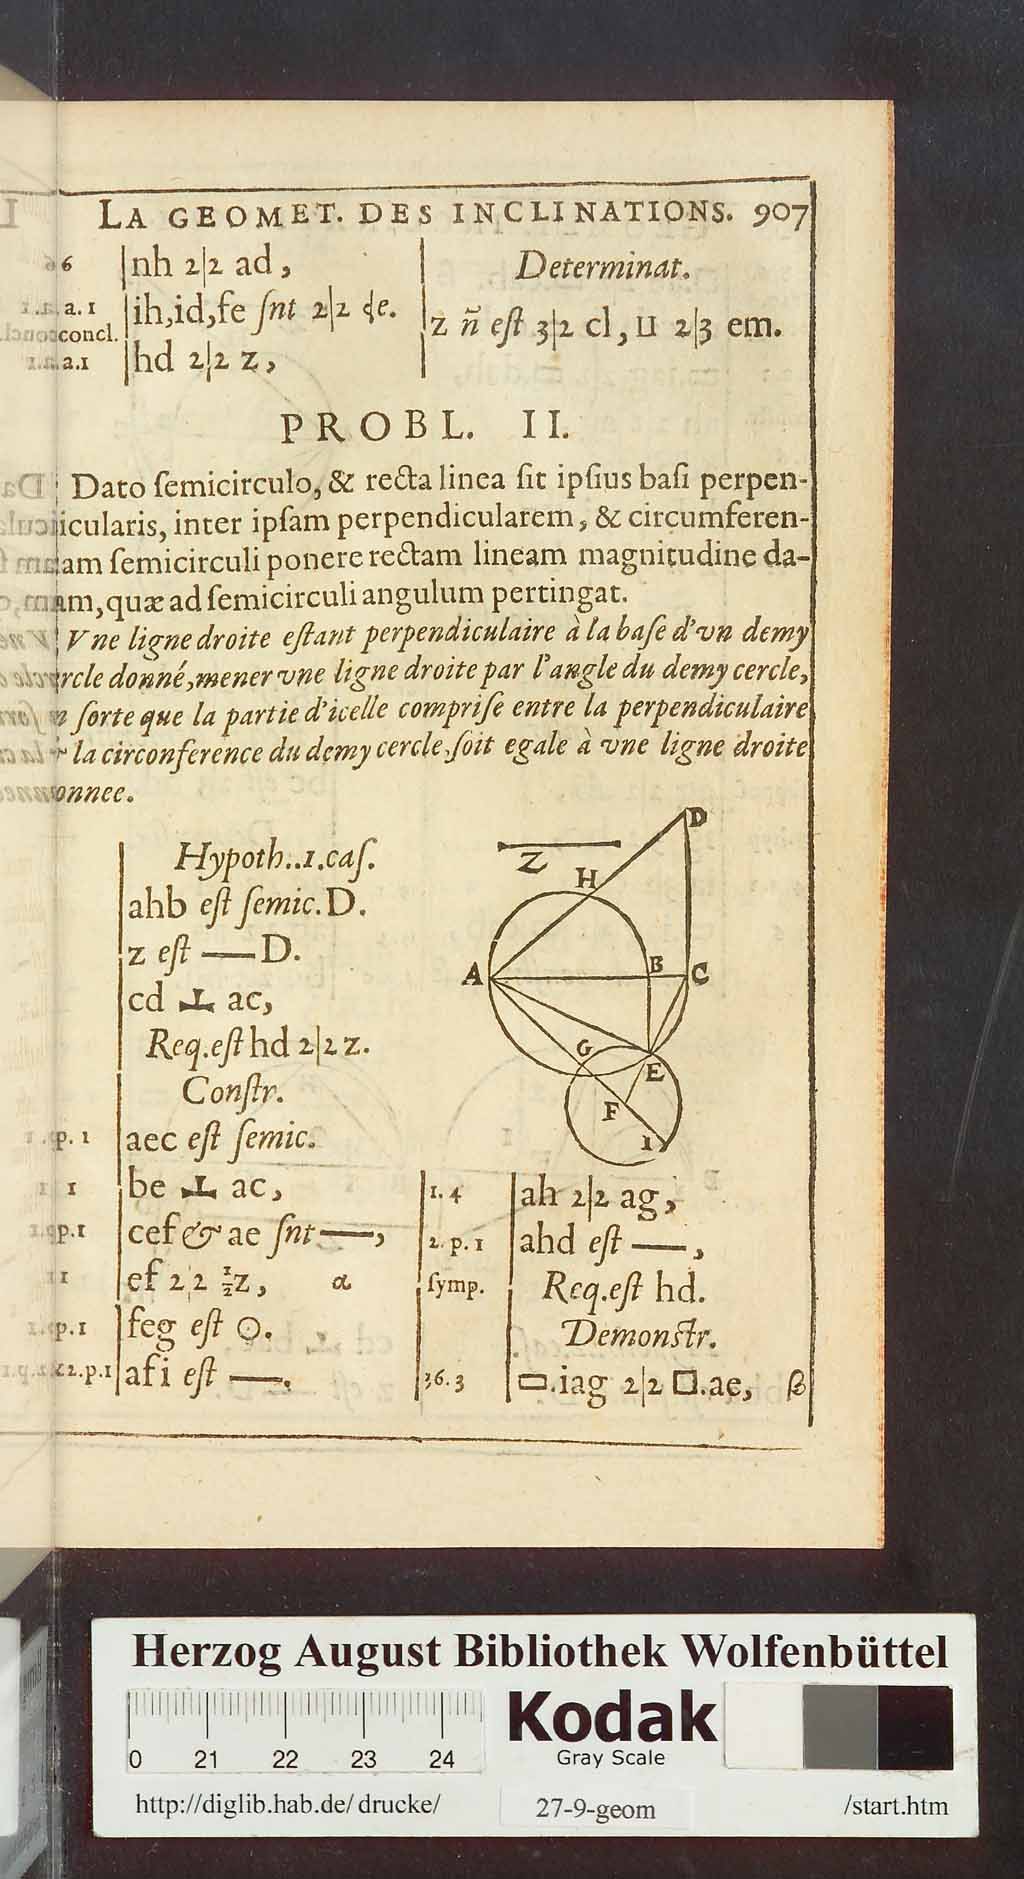 LA GEOMET. DES INCLINATIONS. 907
6 nh 2|2 ad,
a. 1 ih,id,fe ſnt 2|2 de.
concl.
a.1 hd 2|2 z,
Determinat.
z ñ eſt 3|2 cl, ⊔ 2|3 em.
PROBL. II.
Dato ſemicirculo, & recta linea ſit ipſius baſi perpen-
icularis, inter ipſam perpendicularem, & circumferen-
am ſemicirculi ponere rectam lineam magnitudine da-
am, quæ ad ſemicirculi angulum pertingat.
Vne ligne droite eſtant perpendiculaire à la baſe d'vn demy
rcle donné, mener vne ligne droite par l'angle du demy cercle,
n ſorte que la partie d'icelle compriſe entre la perpendiculaire
la circonference du demy cercle, ſoit egale à vne ligne droite
onnee.
Hypoth..1.caſ.
ahb eſt ſemic. D.
z eſt — D.
cd ⊥ ac,
Req.eſt hd 2|2 z.
Conſtr.
p. 1 aec eſt ſemic.
1 be ⊥ ac,
p.1 cef & ae ſnt —,
11 ef 2|2 ½z, α
p.1 feg eſt ⊙.
2.p.1 afi eſt —.
D
Z
H
A B C
G
E
F
I
1. 4 ah 2|2 ag,
2. p. 1 ahd eſt —,
ſymp. Req.eſt hd.
Demonſtr.
36. 3 ▭.iag 2|2 □.ae, β
Herzog August Bibliothek Wolfenbüttel
0 21 22 23 24
Kodak
Gray Scale
http://diglib.hab.de/ drucke/ 27-9-geom /start.htm